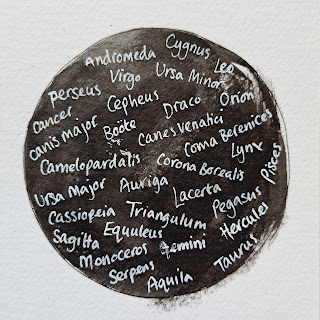 Andromeda Cygnus Leo
Perseus Virgo Ursa Minor
Cancer Cepheus Draco Orion
Canis Major Boöte Canes Venatici Coma Berenices
Camelopardalis Corona Borealis Lynx
Ursa Major Auriga Lacerta Pisces
Cassiopeia Triangulum Pegasus
Sagitta Equuleus Hercules
Monoceros Gemini
Serpens Aquila Taurus